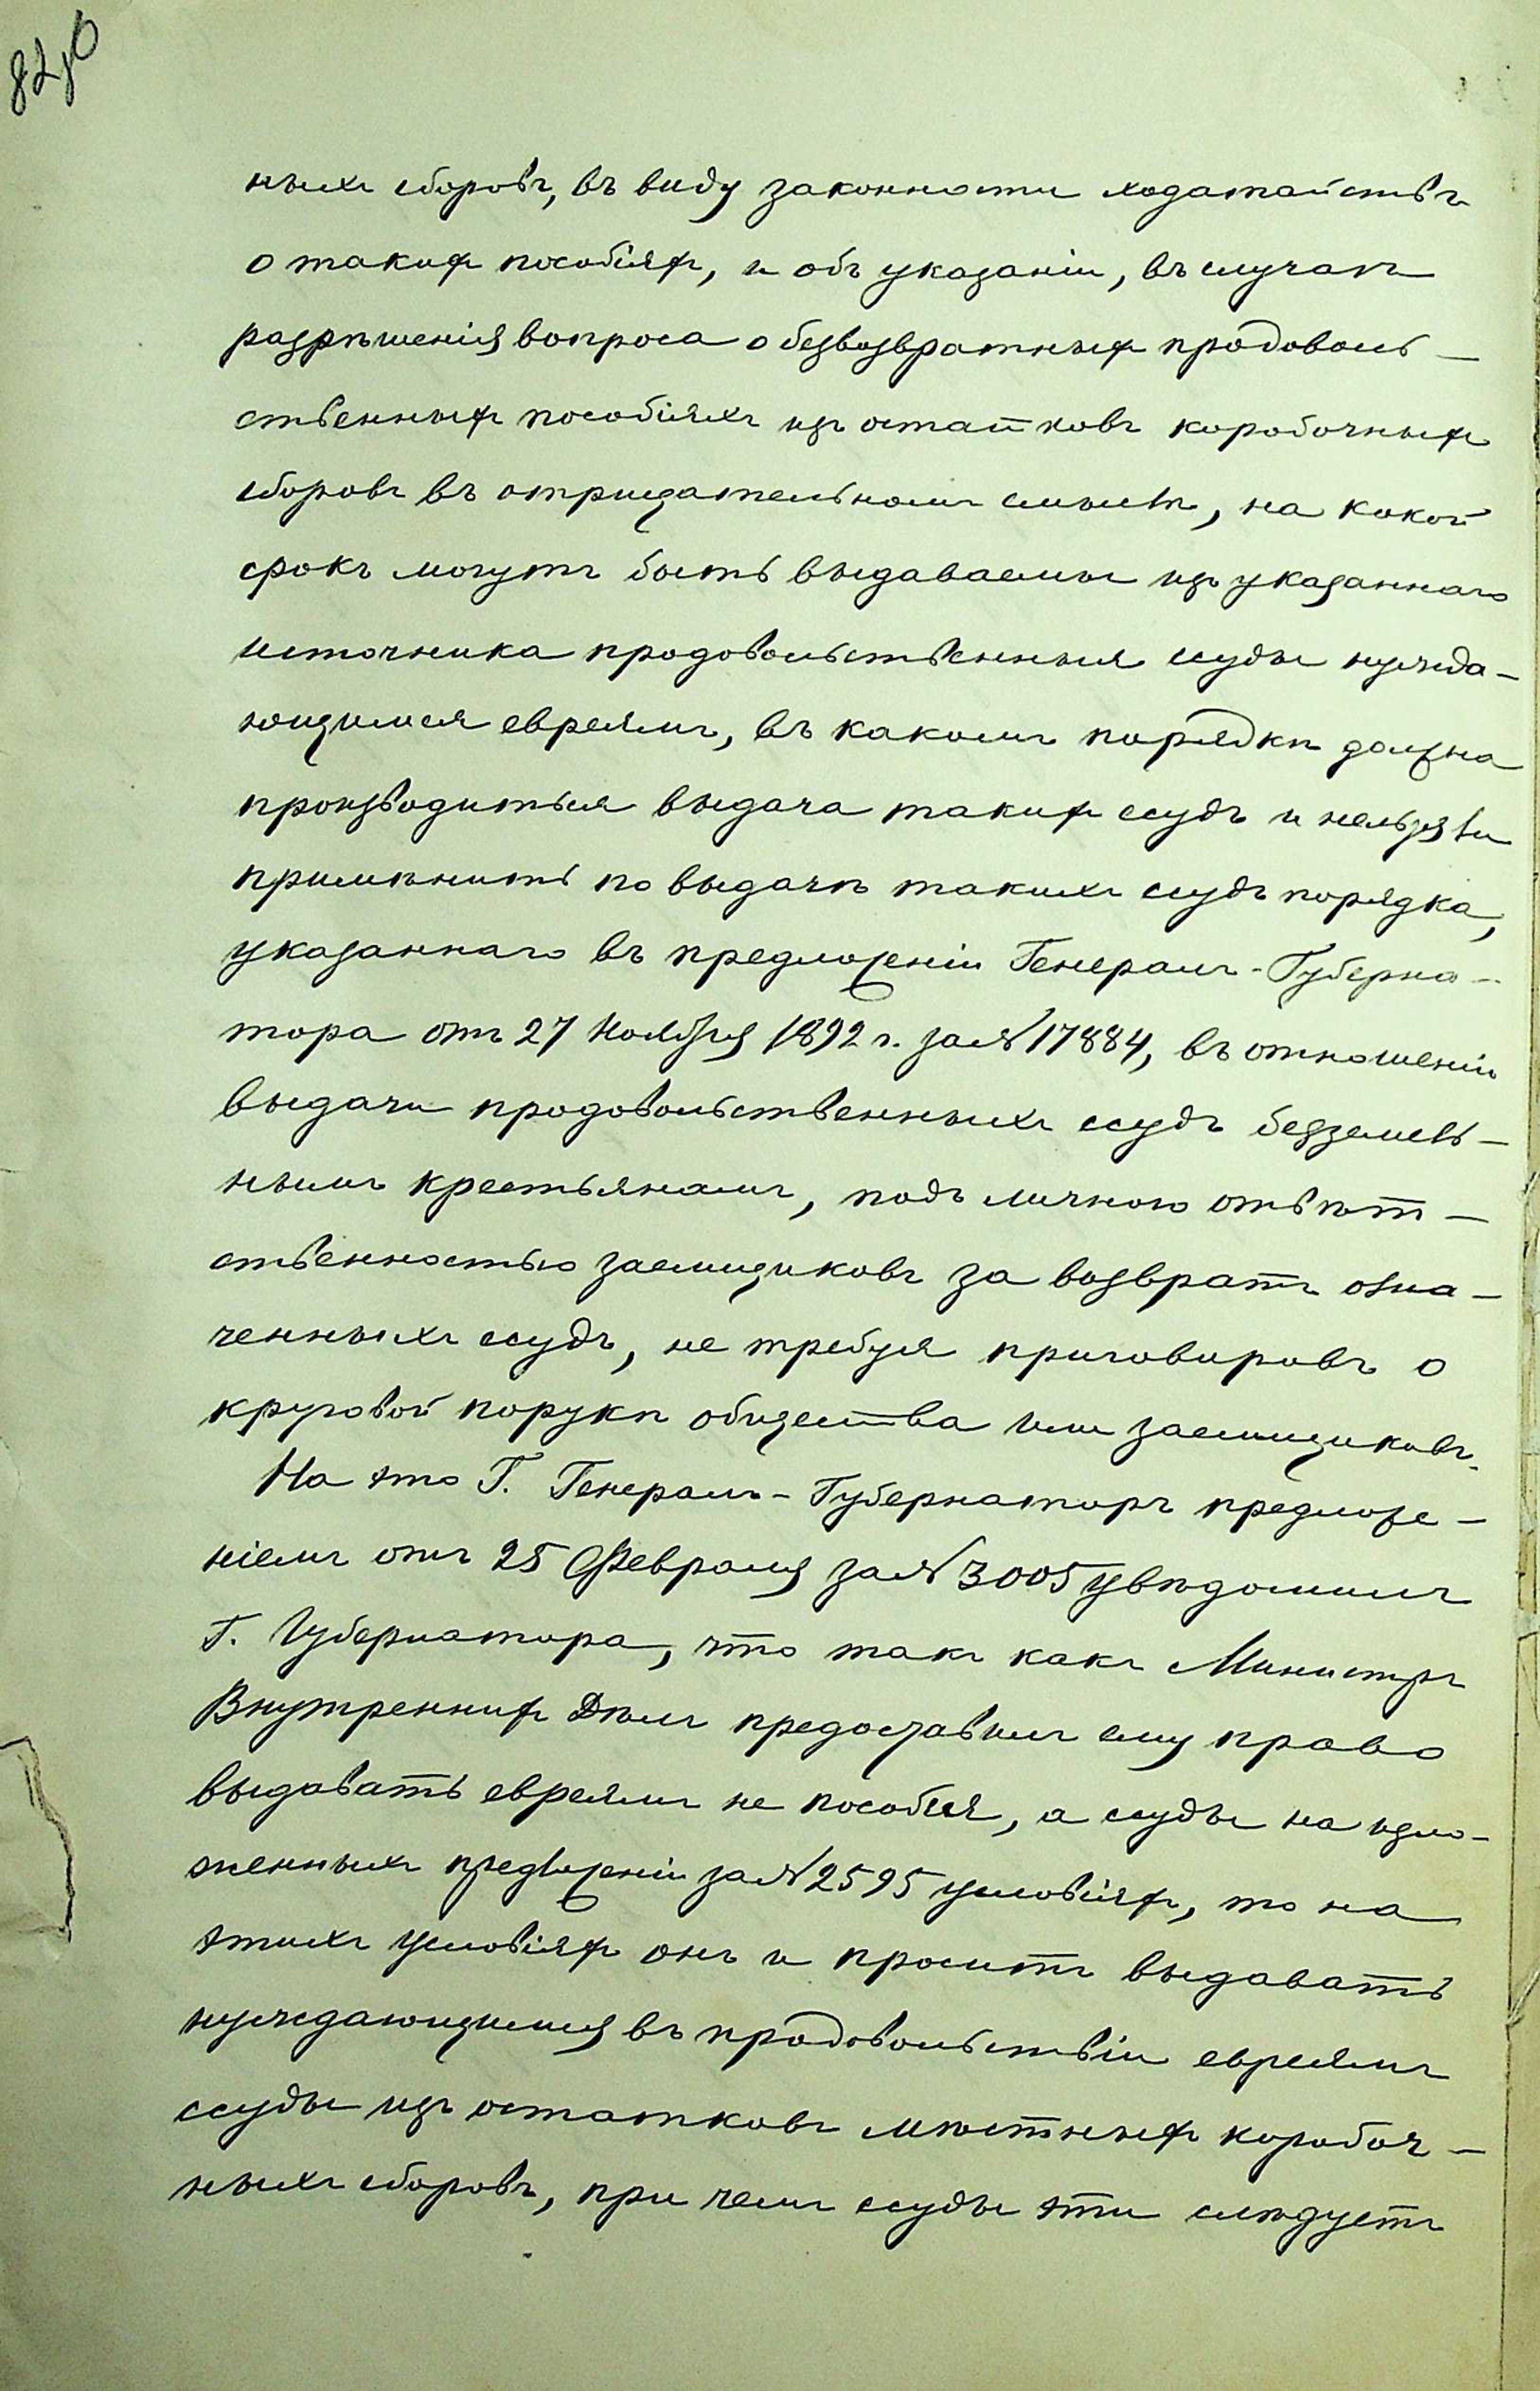 82 об
ныхъ сборовъ, въ виду законности ходатайствъ
о такихъ пособіяхъ, и объ указаніи, въ случаѣ
разрѣшенія вопроса о безвозвратныхъ продоволь-
ственныхъ пособіяхъ изъ остатковъ коробочныхъ
сборовъ въ отрицательномъ смыслѣ, на какой
срокъ могутъ быть выдаваемы изъ указаннаго
источника продовольственныя ссуды нужда-
ющимся евреямъ, въ какомъ порядкѣ должна
производиться выдача такихъ ссудъ и нельзя ли
примѣнить по выдачѣ такихъ ссудъ порядка,
указаннаго въ предложеніи Генералъ-Губерна-
тора отъ 27 Ноября 1892 г. за № 17884, въ отношеніи
выдачи продовольственныхъ ссудъ безземель-
нымъ крестьянамъ, подъ личною отвѣт-
ственностью заемщиковъ за возвратъ озна-
ченныхъ ссудъ, не требуя приговоровъ о
круговой порукѣ общества или заемщиковъ.
На это Г. Генералъ-Губернаторъ предложе-
ніемъ отъ 25 Февраля за № 3005 увѣдомилъ
Г. Губернатора, что такъ какъ Министръ
Внутреннихъ Дѣлъ предоставилъ ему право
выдавать евреямъ не пособія, а ссуды на изло-
женныхъ предложеніи за № 2595 условіяхъ, то на
этихъ условіяхъ онъ и проситъ выдавать
нуждающимся въ продовольствіи евреямъ
ссуды изъ остатковъ мѣстныхъ коробоч-
ныхъ сборовъ, при чемъ ссуды эти слѣдуетъ